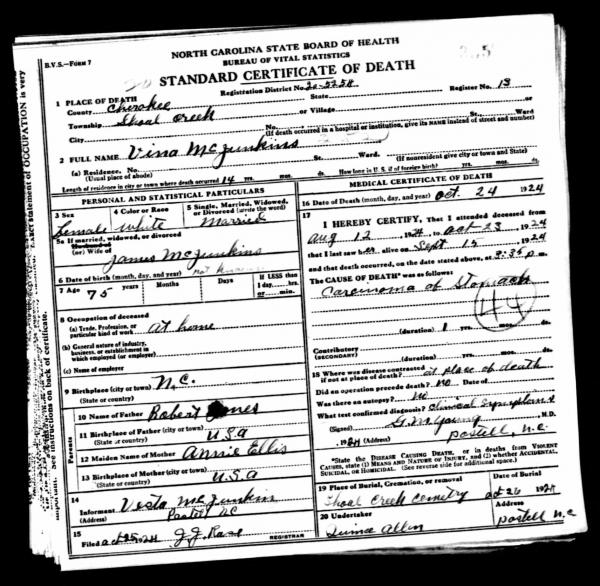 B.V.S.—FORM 7
NORTH CAROLINA STATE BOARD OF HEALTH
BUREAU OF VITAL STATISTICS
STANDARD CERTIFICATE OF DEATH
1 PLACE OF DEATH
Registration District No. 20-5258
Register No. 13
County Cherokee
State
Township Shoal Creek
or Village
City
No.
St.
Ward
(If death occurred in a hospital or institution, give its NAME instead of street and number)
2 FULL NAME Vina McJunkins
(a) Residence. No.
St.
Ward.
(Usual place of abode)
(If nonresident give city or town and State)
Length of residence in city or town where death occurred 14 yrs. mos. ds.
How long in U. S. if of foreign birth? yrs. mos. ds.
PERSONAL AND STATISTICAL PARTICULARS
3 Sex
4 Color or Race
5 Single, Married, Widowed, or Divorced (write the word)
Female
White
Married
5a If married, widowed, or divorced
(or) Wife of James McJunkins
6 Date of birth (month, day, and year) not known
7 Age 75 years
Months
Days
If LESS than 1 day,....hrs. or....min.
8 Occupation of deceased
(a) Trade, Profession, or particular kind of work
at home
(b) General nature of industry, business, or establishment in which employed (or employer)
(c) Name of employer
9 Birthplace (city or town) N.C.
(State or country)
Parents
10 Name of Father Robert
11 Birthplace of Father (city or town)
(State or country)
USA
12 Maiden Name of Mother Annie Ellis
13 Birthplace of Mother (city or town)
(State or country)
USA
14
Informant Vesta McJunkin
(Address) Postell NC
15
Filed Oct 25 1924
REGISTRAR
MEDICAL CERTIFICATE OF DEATH
16 Date of Death (month, day, and year) Oct. 24 1924
17
I HEREBY CERTIFY, That I attended deceased from
Aug 12 1924 to Oct 23, 1924
that I last saw her alive on Sept 15 1924
and that death occurred, on the date stated above, at 8:35 p m.
The CAUSE OF DEATH* was as follows:
Carcinoma of Stomach
44
(duration) 1 yrs. mos. ds.
Contributory
(SECONDARY)
(duration) yrs. mos. ds.
18 Where was disease contracted
if not at place of death? at place of death
Did an operation precede death? No Date of
Was there an autopsy? No
What test confirmed diagnosis? Clinical symptoms
(Signed) G. M. Young M.D.
, 1924 Postell N.C.
*State the DISEASE CAUSING DEATH, or in deaths from VIOLENT CAUSES, state (1) MEANS AND NATURE OF INJURY, and (2) whether ACCIDENTAL, SUICIDAL, or HOMICIDAL. (See reverse side for additional space.)
19 Place of Burial, Cremation, or removal
Date of Burial
Shoal Creek Cemetry
Oct 26 1924
20 Undertaker
Address
Allen
Postell N.C